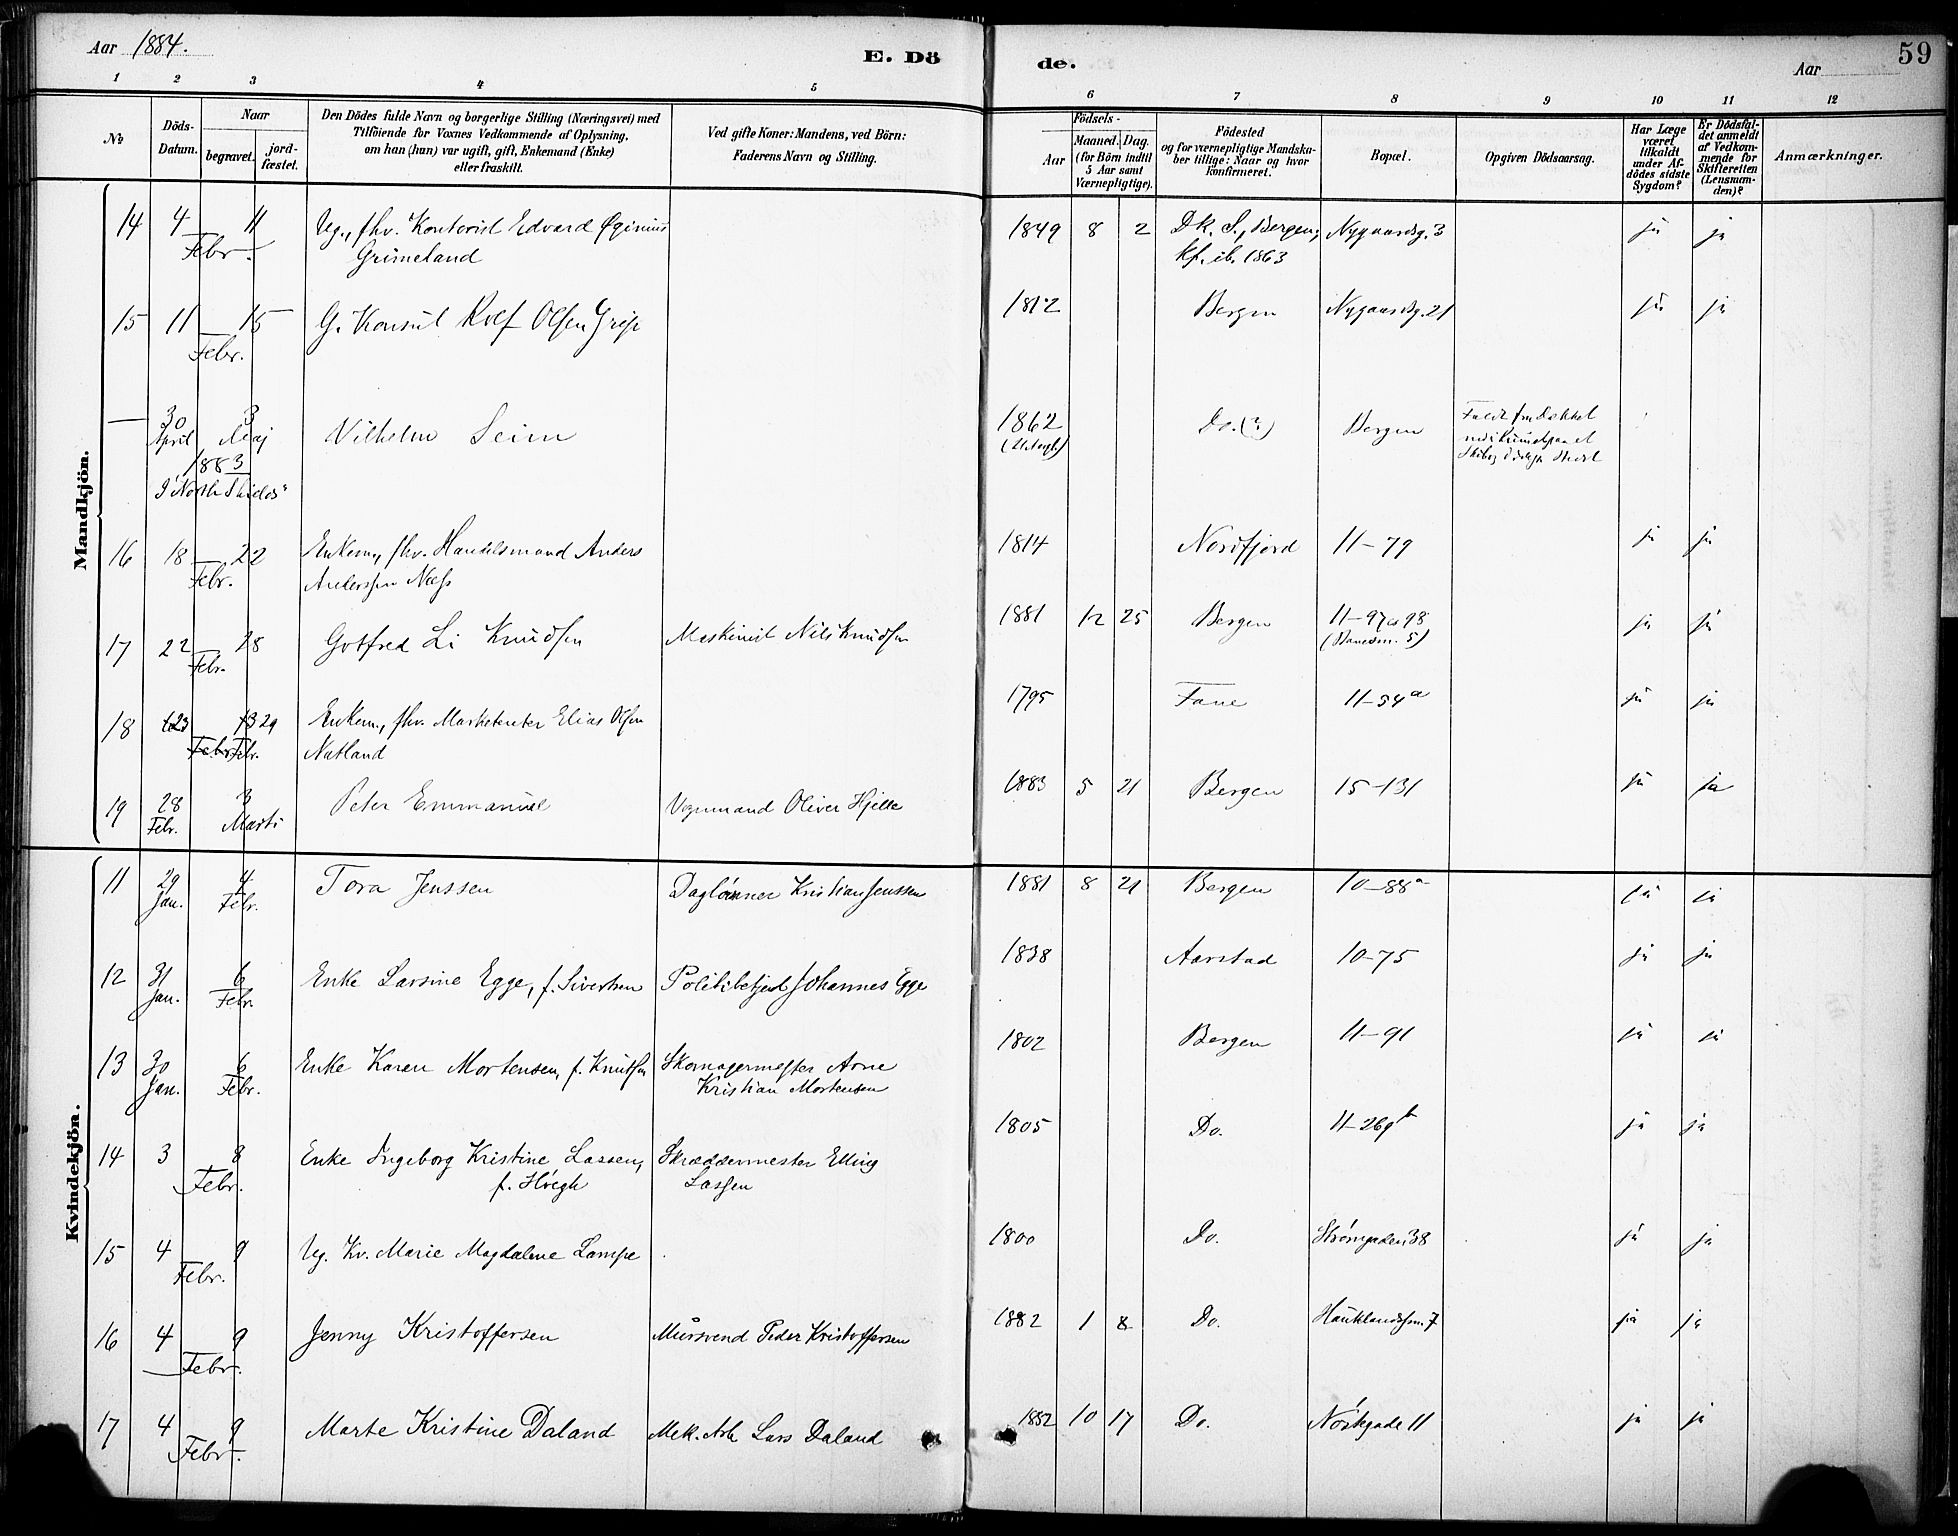 Aar 1884.
E. Dö
de.
Aar
59
1 2 3 4 5 6 7 8 9 10 11 12
№
Döds-
Datum.
Naar
begravet.
jord-
fæstet.
Den Dödes fulde Navn og borgerlige Stilling (Næringsvei) med
Tilföiende for Voxnes Vedkommende af Oplysning,
om han (hun) var ugift, gift, Enkemand (Enke)
eller fraskilt.
Ved gifte Koner: Mandens, ved Börn:
Faderens Navn og Stilling.
Födsels-
Aar
Maaned. Dag.
(for Börn indtil
5 Aar samt
Værnepligtige).
Födested
og for værnepligtige Mandska-
ber tillige: Naar og hvor
konfirmeret.
Bopæl.
Opgiven Dödsaarsag.
Har Læge
været
tilkaldt
under Af-
dödes sidste
Sygdom?
Er Dödsfal-
det anmeldt
af Vedkom-
mende for
Skifteretten
(Lensman-
den)?
Anmærkninger.
Mandkjön.
14 4 11 Ug., fhv. Kontorist Edvard 1849 8 2 Dk. S., Bergen; Nygaardsg. 3 ja ja
Febr. Grimeland kf. ib. 1863
15 11 15 G. Konsul Rolf Olsen Grip 1812 Bergen Nygaardsg. 21 ja ja
Febr.
— 30 3 Vilhelm Seim 1862 Do. (?) Bergen Faldt fra Dækket
April Maj
1883
I "North Shields"
16 18 22 Enkem., fhv. Handelsmand Anders 1814 Nordfjord 11-79 ja ja
Febr. Anderssen Næss
17 22 28 Gotfred Li Knudsen Maskinist Nils Knudsen 1881 12 25 Bergen 11-97 98 ja ja
Febr.
18 23 29 Enkem., fhv. Marketenter Elias Olsen 1795 Fane 11-54a ja ja
Febr. Febr. Natland
19 28 3 Peter Emmanuel Vognmand Oliver Hjelle 1883 5 21 Bergen 15-131 ja ja
Febr. Marts
Kvindekjön.
11 29 4 Tora Jenssen Daglönner Kristian Jenssen 1881 8 21 Bergen 10-88a ja ja
Jan. Febr.
12 31 6 Enke Larsine Egge, f. Sivertsen Politibetjent Johannes Egge 1838 Aarstad 10-75 ja ja
Jan. Febr.
13 30 6 Enke Karen Mortensen, f. Knutsen Skomagermester Arne 1802 Bergen 11-91 ja ja
Jan. Febr. Kristian Mortensen
14 3 8 Enke Ingeborg Kristine Lassen, Skræddermester Elling 1805 Do. 11-269b ja ja
Febr. f. Höegh Lassen
15 4 9 Ug. Kv. Marie Magdalene Lampe 1800 Do. Strömgaden 38 ja ja
Febr.
16 4 9 Jenny Kristoffersen Mursvend Peder Kristoffersen 1882 1 8 Do. Hauklandssm. 7 ja ja
Febr.
17 4 9 Marte Kristine Daland Mek. Arb. Lars Daland 1882 10 17 Do. Nöstegade 11 ja ja
Febr.